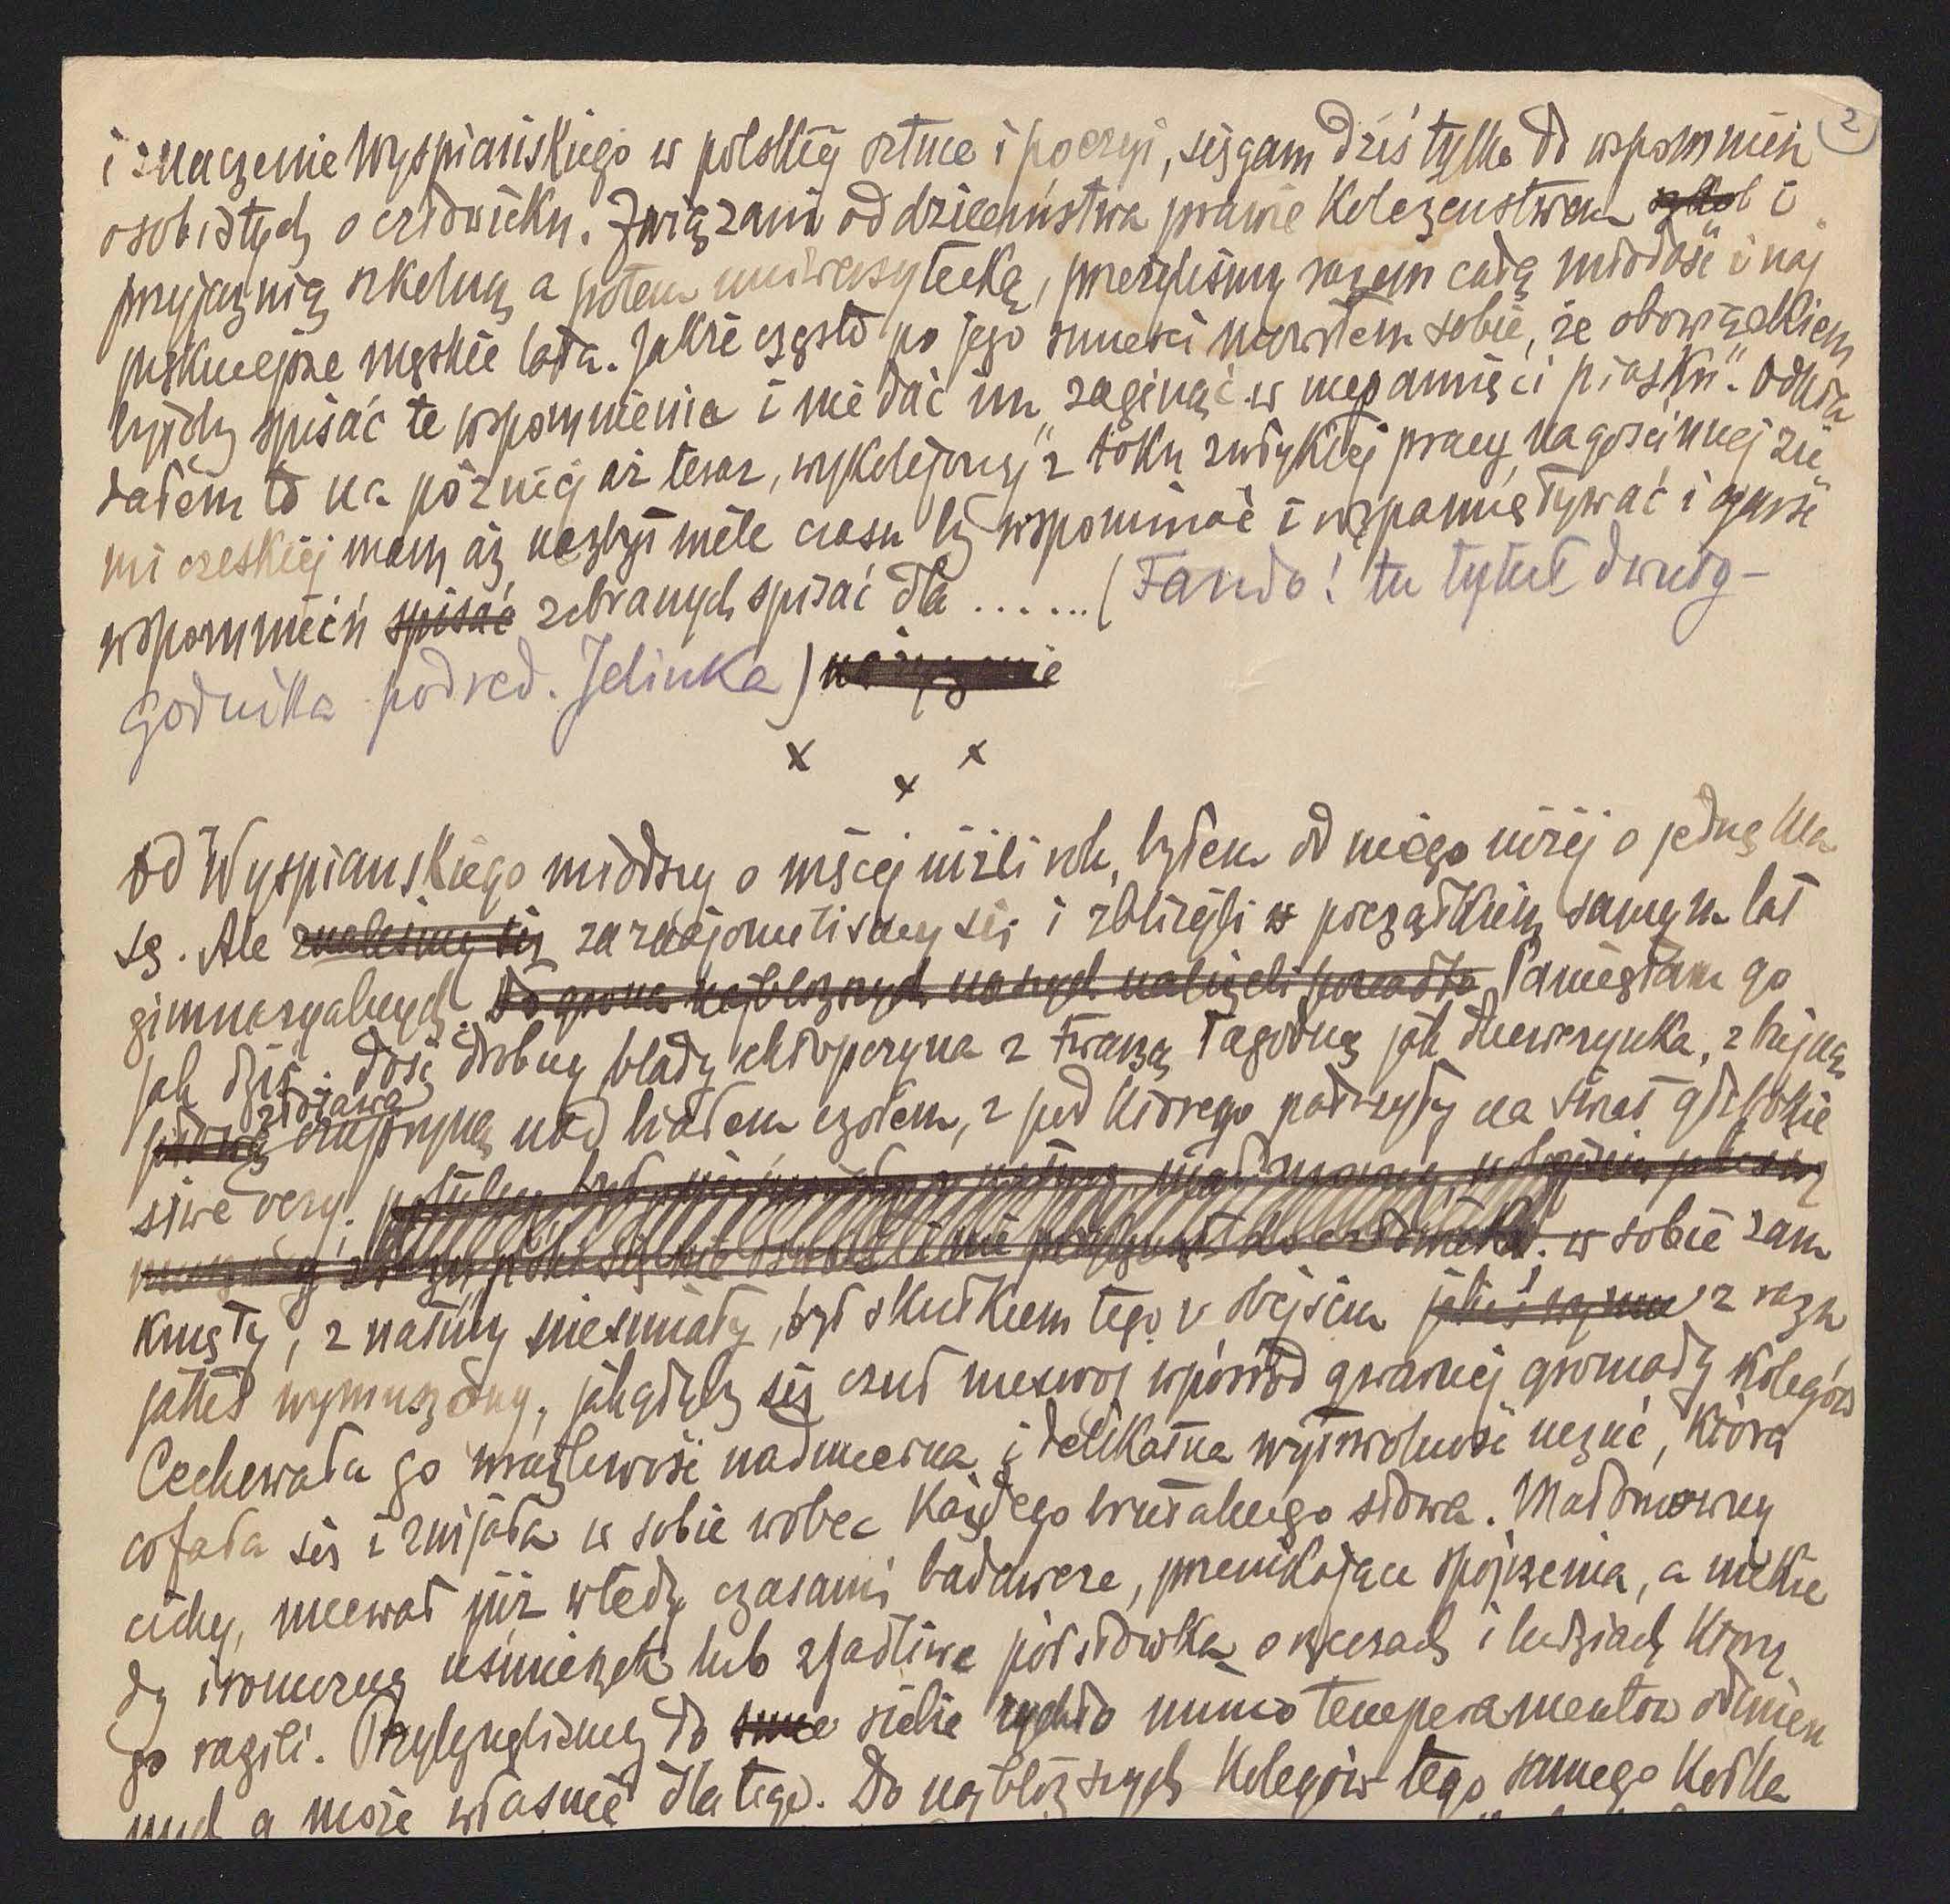 2
i znaczenie Wyspiańskiego w polskiej sztuce i poezyi, sięgam dziś tylko do wspomnień
osobistych o człowieku. Związani od dzieciństwa prawie koleżeństwem i
przyjaźnią szkolną a potem uniwersytecką, przeżyliśmy razem całą młodość i naj
piękniejsze męskie lata. Jakże często po jego śmierci mówiłem sobie, że obowiązkiem
byłoby spisać te wspomnienia i nie dać im „zaginąć w niepamięci piasku". Odkła
dałem to na później aż teraz, „wykolejony" z toku zwykłej pracy na gościnnej zie
mi czeskiej mam aż nazbyt wiele czasu by wspominać i wspamiętywać i garść
wspomnień spisać zebranych spisać dla ......(Fando! tu tytuł dwuty-
godnika pod red. Jelinka)
x x
x
Od Wyspiańskiego młodszy o więcej niżli rok, byłem od niego niżej o jedną kla
sę. Ale znaleśmy się zaznajomiliśmy się i zbliżyli z początkiem samym lat
gimnazyalnych. Do grona najbliższych naszych należeli Pamiętam go
jak dziś. Dość drobny blady chłopczyna z twarzą łagodną jak dziewczynka, z bujną
złotawą
płową czupryną nad białem czołem, z pod którego patrzyły na świat głębokie
siwe oczy. w sobie zam
knięty, z natury nieśmiały, był skutkiem tego w obejściu z razu
jakiś wymuszony, jakgdyby się czuł nieswój wpośród gwarnej gromady kolegów
Cechowała go wrażliwość nadmierna i delikatna wytworność uczuć, która
cofała się i zwijała w sobie wobec każdego brutalnego słowa. Małomówny
cichy, miewał już wtedy czasami badawcze, przenikające spojrzenia, a niekie
dy ironiczny uśmieszek lub zjadliwe półsłówka o rzeczach i ludziach którzy
go razili. Przylgnęliśmy do siebie rychło mimo temperamentów odmien
nych a może właśnie dlatego. Do najbliższych kolegów tego samego kółka